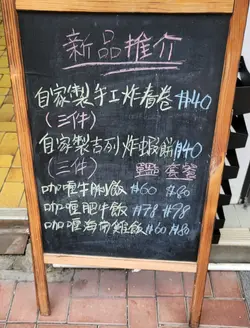 新品推介
自家製手工炸春卷 $40
(三件)
自家製吉列炸蝦餅 $40
(三件) 單點 套餐
咖喱牛腩飯 $60 $80
咖喱肥牛飯 $78 $98
咖喱海南雞飯 $60 $80